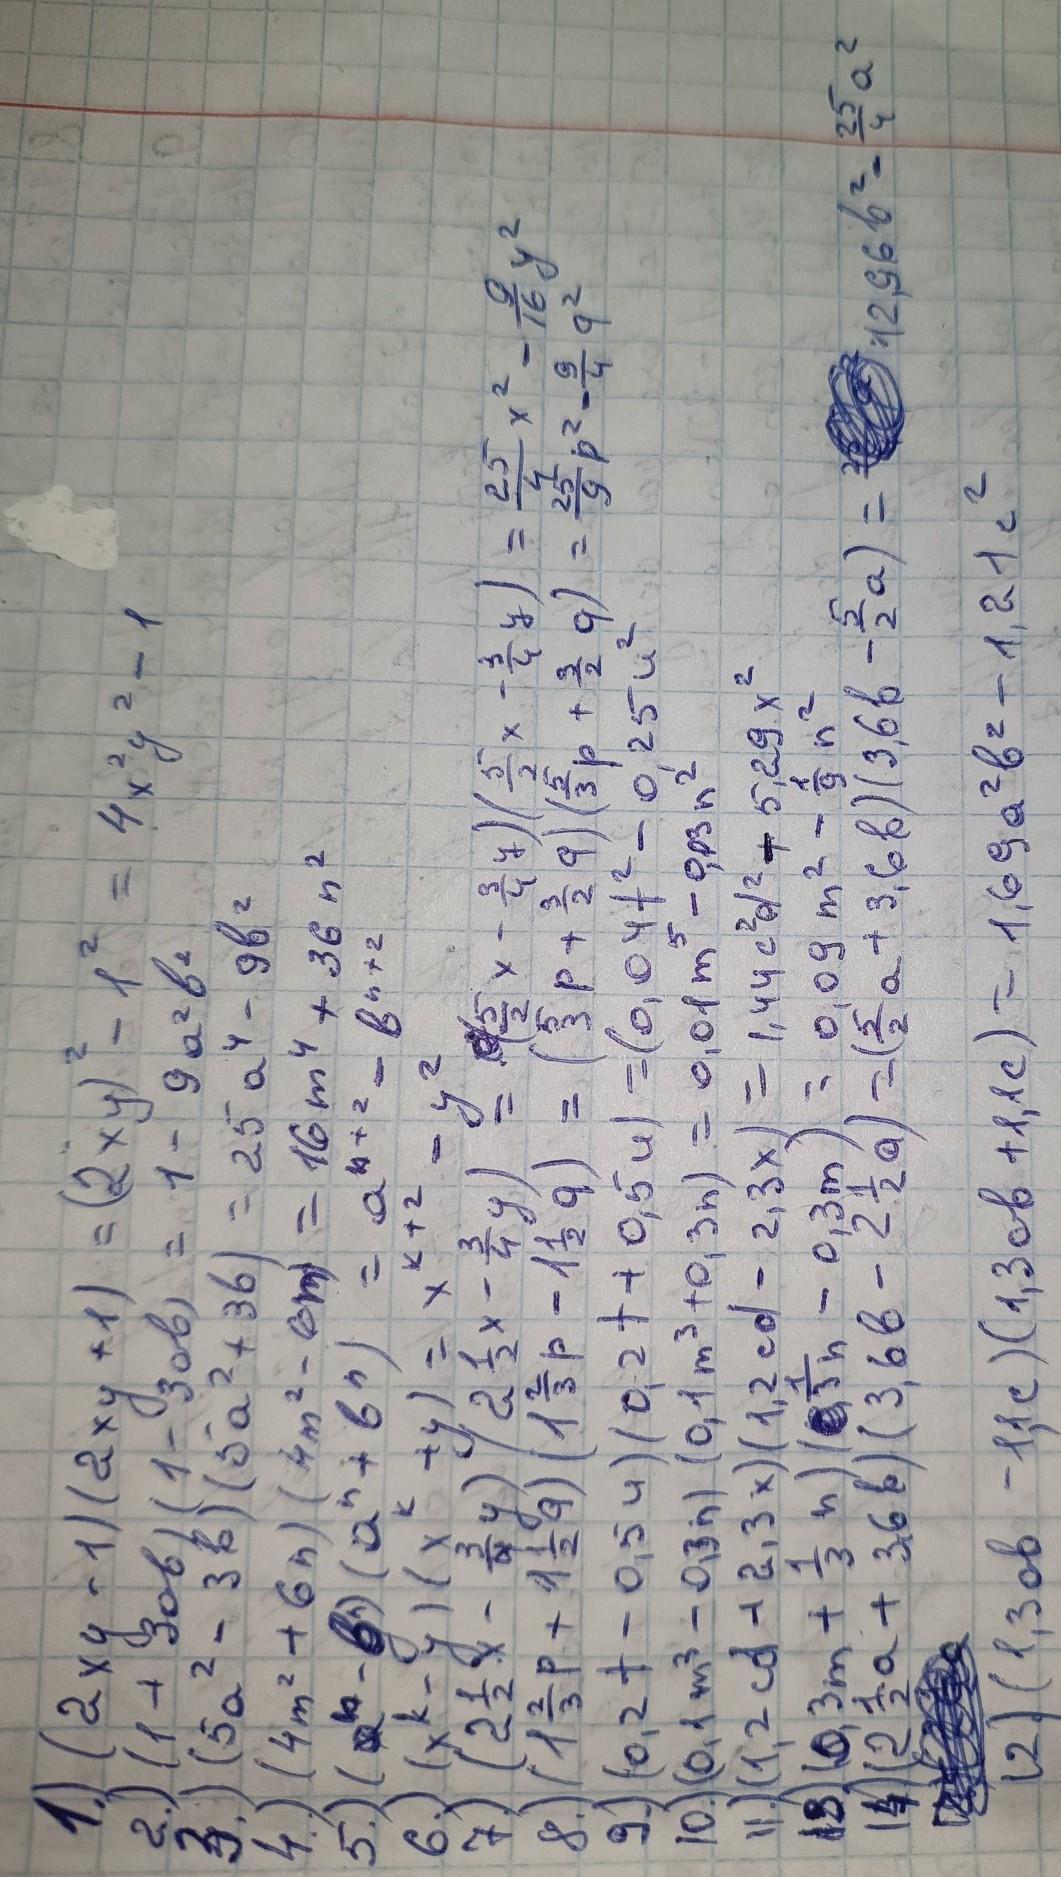 1.) (2xy-1)(2xy+1) = (2xy)² - 1² = 4x²y² - 1
2.) (1 + 3ab)(1 - 3ab) = 1 - 9a²b²
3.) (5a² - 3b)(5a² + 3b) = 25a⁴ - 9b²
4.) (4m² + 6n)(4m² - 6m) = 16m⁴ + 36n²
5.) (aⁿ - b)(aⁿ + bn) = aⁿ⁺² - bⁿ⁺²
6.) (xᵏ - y)(xᵏ + y) = xᵏ⁺² - y²
7.) (2½x - ¾y)(2½x - ¾y) = (5/2x - ¾y)(5/2x - ¾y) = 25/4x² - 9/16y²
8.) (1⅔p + 1½q)(1⅔p - 1½q) = (5/3p + 3/2q)(5/3p + 3/2q) = 25/9p² - 9/4q²
9.) (0,2t - 0,5u)(0,2t + 0,5u) = (0,04t² - 0,25u²
10.) (0,1m³ - 0,3n)(0,1m³ + 0,3n) = 0,01m⁵ - 0,03n²
11.) (1,2cd + 2,3x)(1,2cd - 2,3x) = 1,44c²d² + 5,29x²
13) (0,3m + ⅓n)(⅓n - 0,3m) = 0,09m² - 1/9n²
14) (2½a + 3,6b)(3,6b - 2½a) = (5/2a + 3,6b)(3,6b - 5/2a) = 12,96b² - 25/4a²
12) (1,3ab - 1,1c)(1,3ab + 1,1c) = 1,69a²b² - 1,21c²